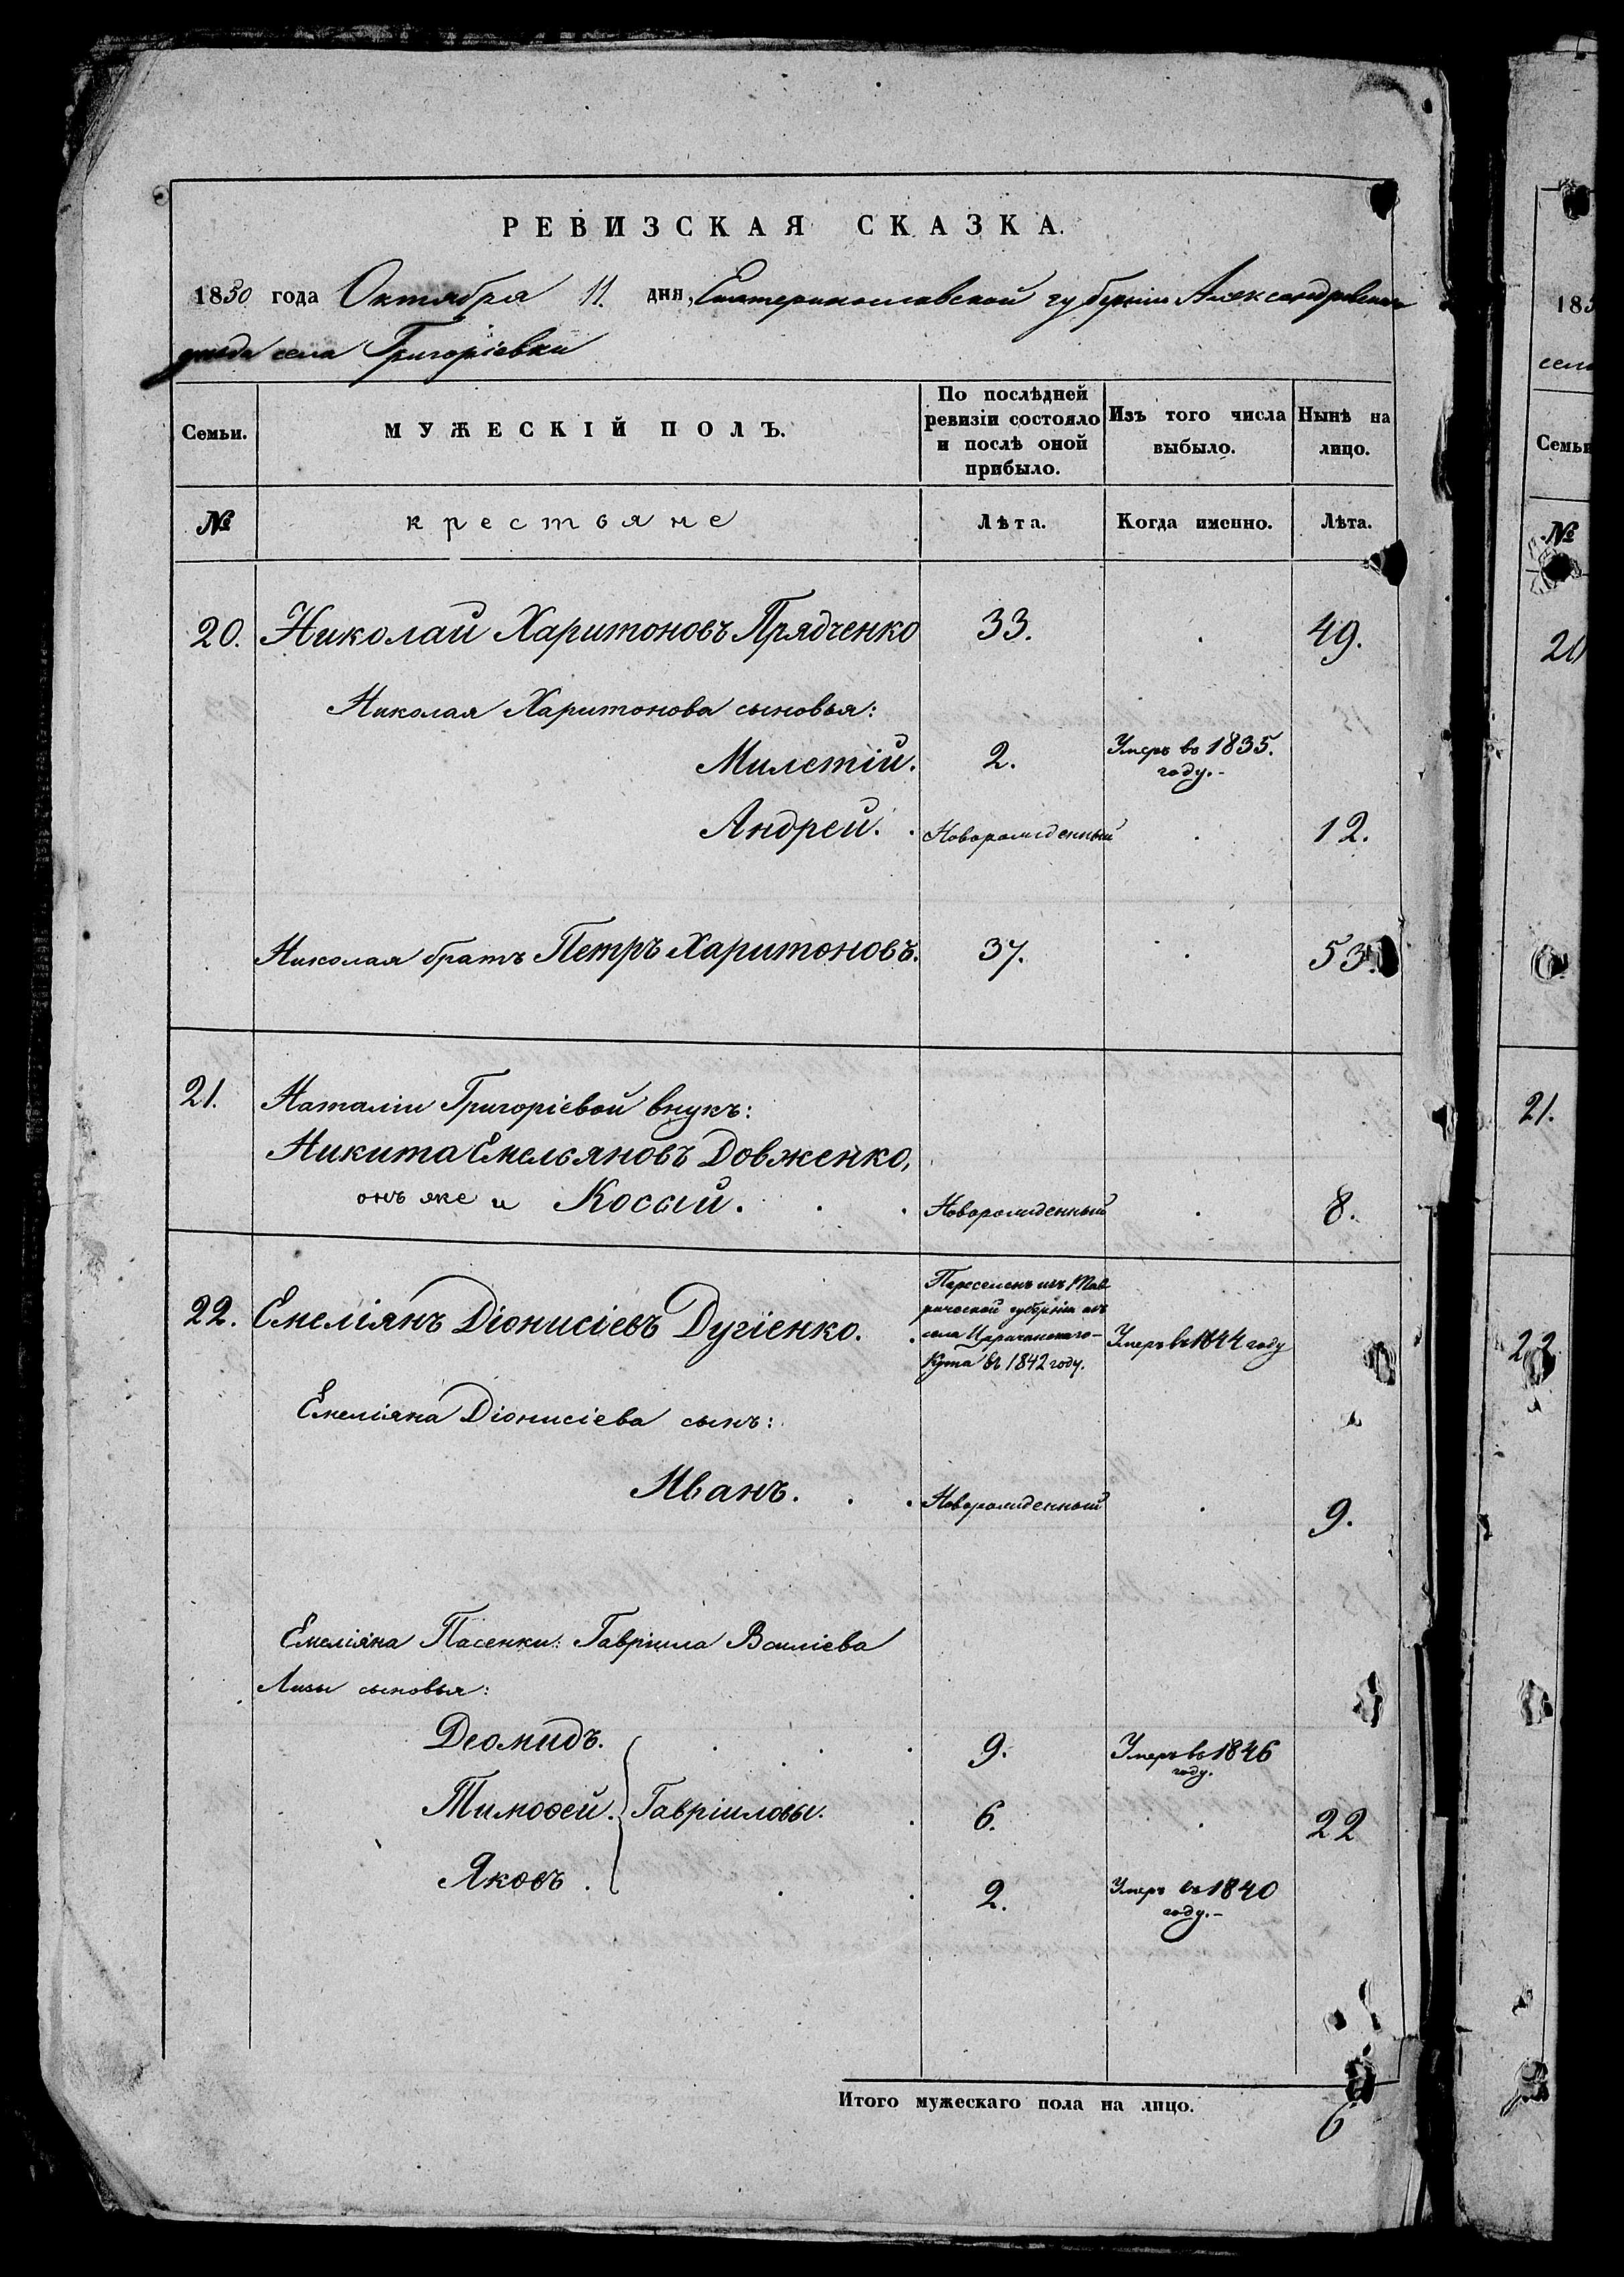 РЕВИЗСКАЯ СКАЗКА.
1850 года Октября 11. дня, Екатеринославской губерніи Александровскаго
уезда села Григоріевки
Семьи.
МУЖЕСКІЙ ПОЛЪ.
По послѣдней ревизіи состояло и послѣ оной прибыло.
Изъ того числа выбыло.
Нынѣ на лицо.
№ крестьяне Лѣта. Когда именно. Лѣта.
20. Николай Харитоновъ Прядченко 33. 49.
Николая Харитонова сыновья:
Милетій. 2. Умеръ въ 1835. году.-
Андрей. Новорожденный 12.
Николая братъ Петръ Харитоновъ. 37. 53.
21. Наталіи Григоріевой внукъ:
Никита Емельяновъ Довженко,
онъ же и Коссий. Новорожденный 8.
22. Емеліянъ Діонисіевъ Дугіенко.
Переселенъ изъ Тав
рической губерніи изъ
села
Кута въ 1842 году.
Умеръ въ 1844 году
Емеліяна Діонисіева сынъ:
Иванъ. Новорожденный 9.
Емеліяна Пасенки: Гавріила Василіева
сыновья:
Деомидъ. 9. Умеръ въ 1846 году.
Тимофей. Гавріиловы. 6. 22
Яковъ. 2. Умеръ въ 1840 году.-
Итого мужескаго пола на лицо. 6
185
Семьи
№
20
21.
22